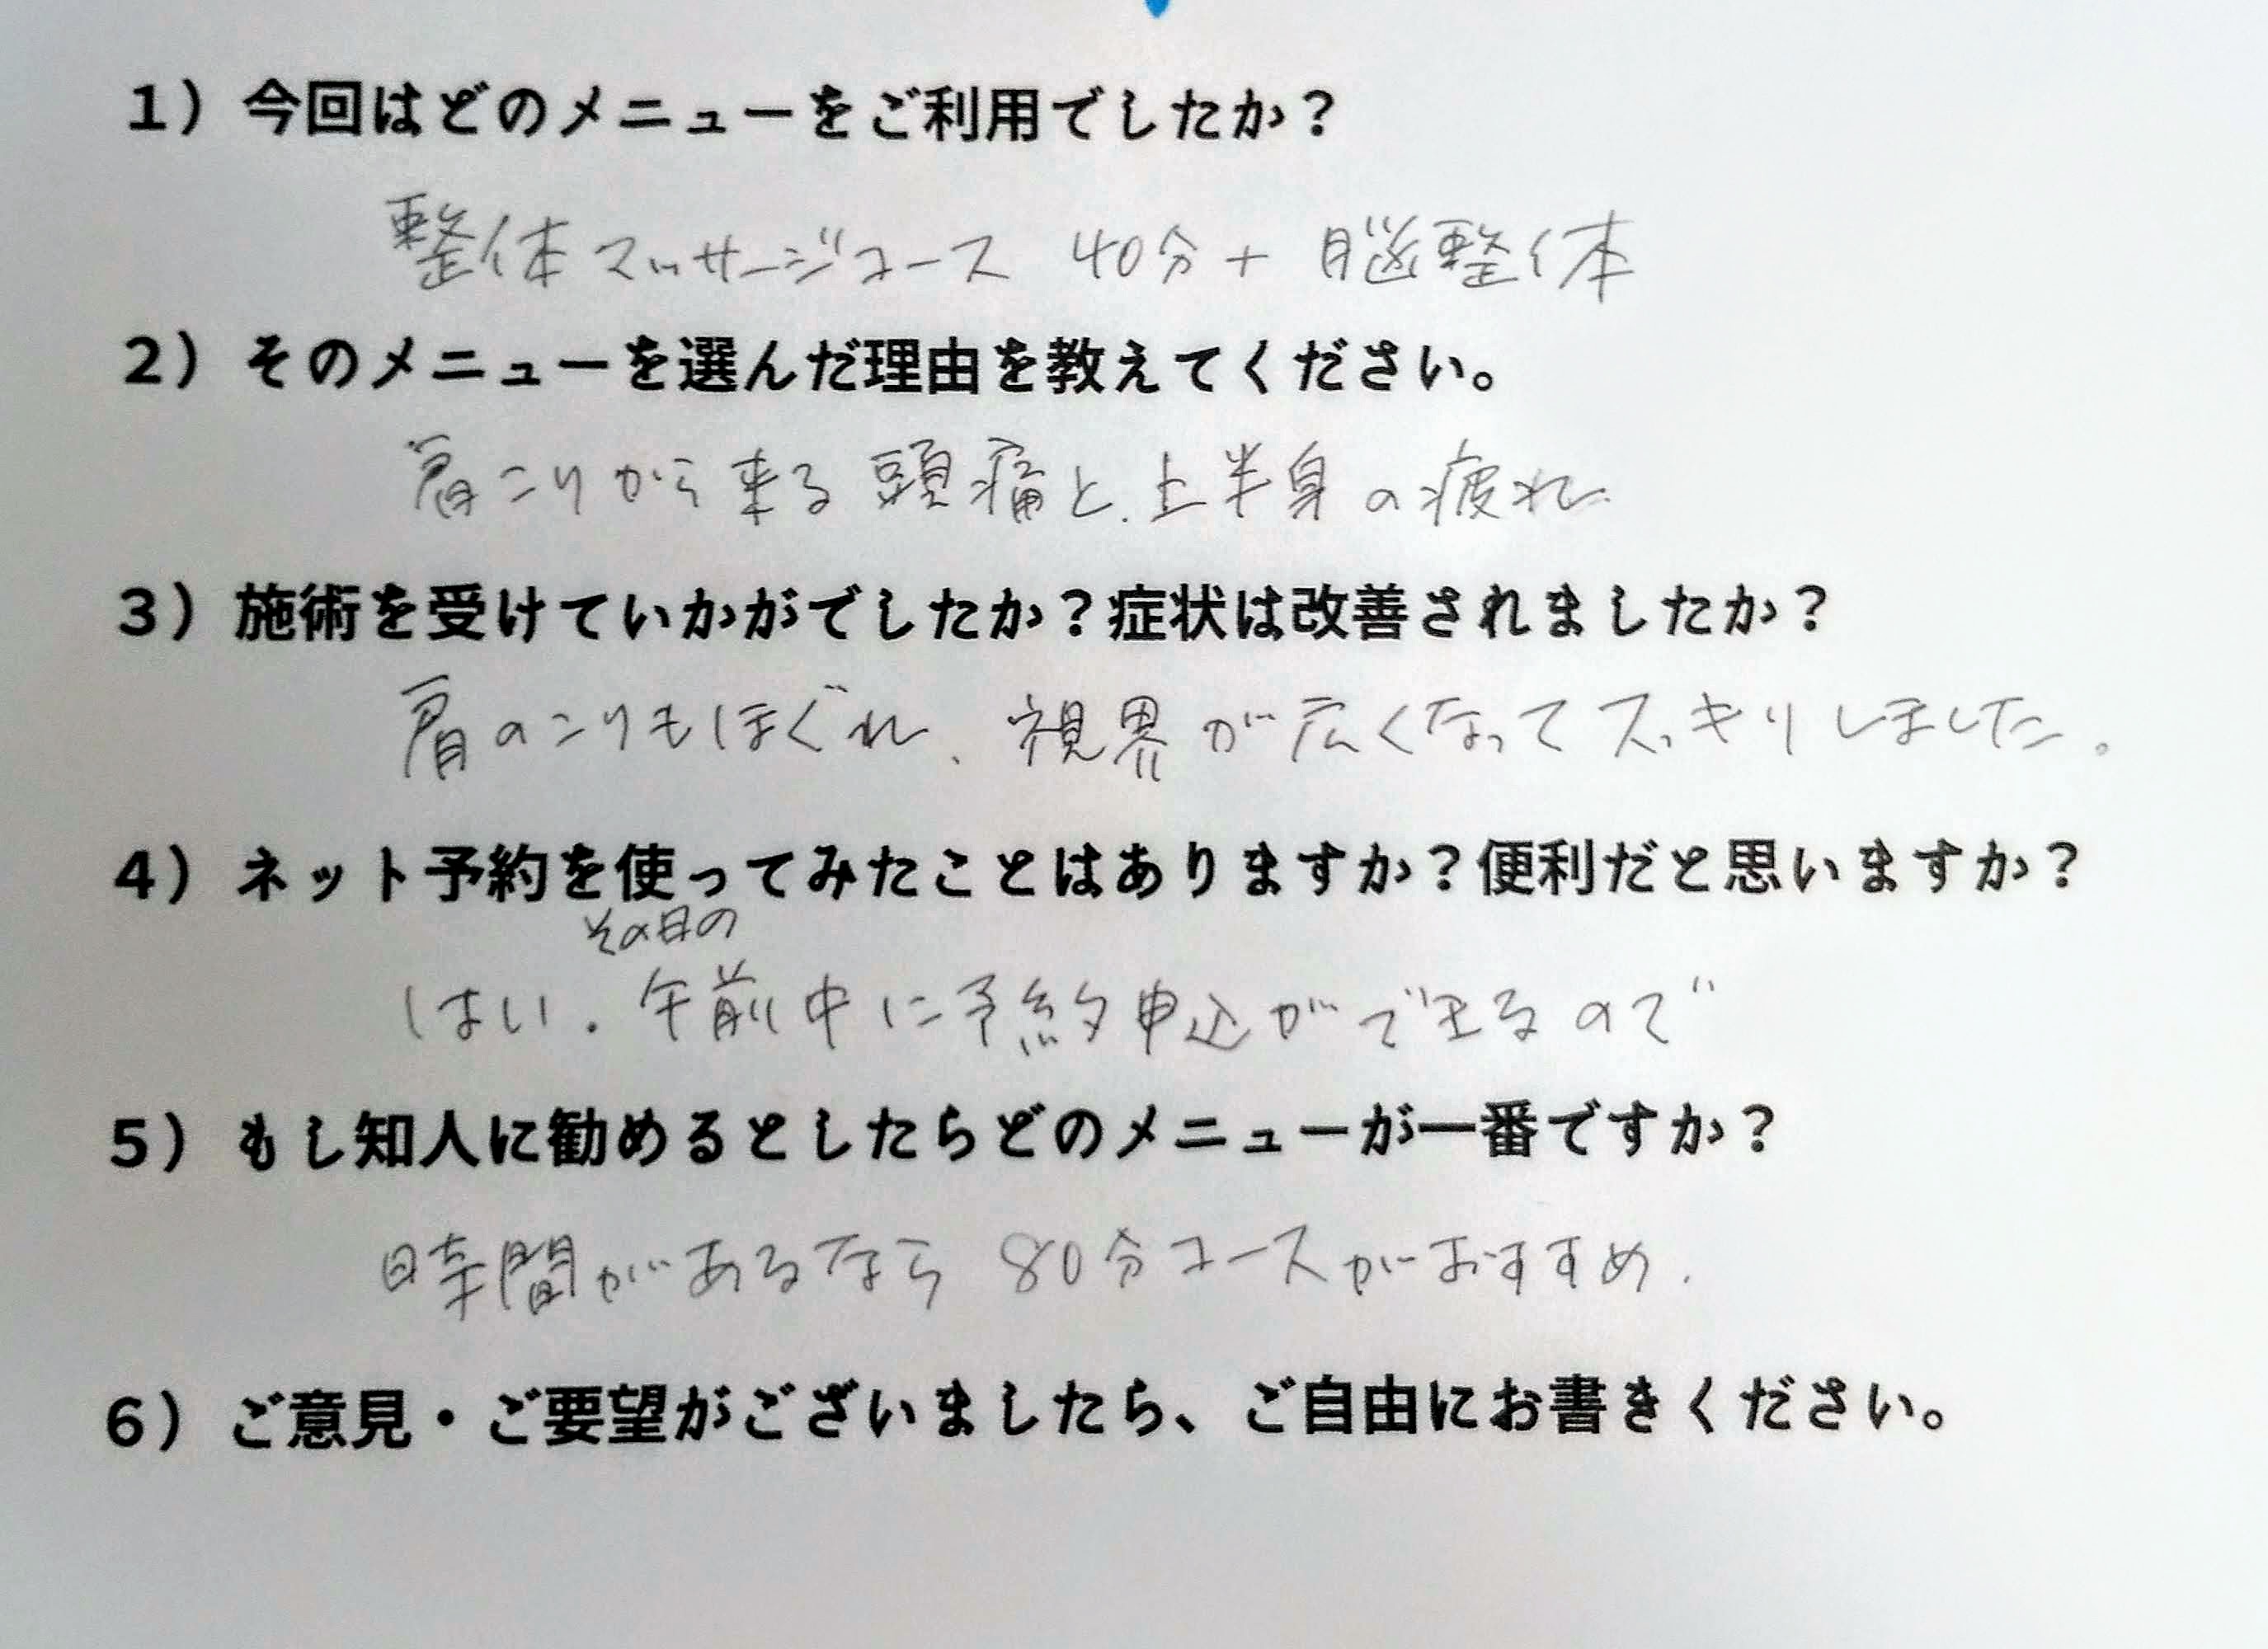 １）今回はどのメニューをご利用でしたか？
整体マッサージコース 40分+脳整体
２）そのメニューを選んだ理由を教えてください。
肩こりから来る頭痛と、上半身の疲れ
３）施術を受けていかがでしたか？症状は改善されましたか？
肩のこりもほぐれ、視界が広くなってスッキリしました。
４）ネット予約を使ってみたことはありますか？便利だと思いますか？
その日の
はい。午前中に予約申込ができるので
５）もし知人に勧めるとしたらどのメニューが一番ですか？
時間があるなら 80分コースがおすすめ.
６）ご意見・ご要望がございましたら、ご自由にお書きください。